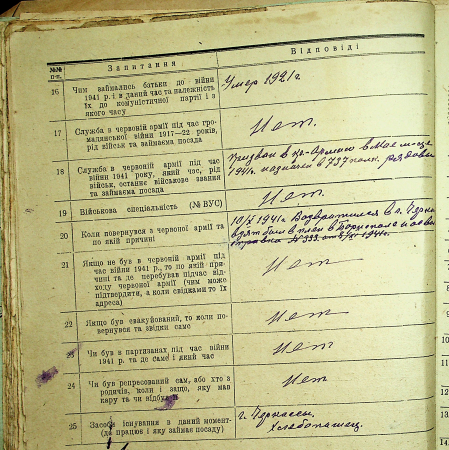 №№
п-п.
Запитання
Відповіді
16
Чим займались батьки до війни
1941 р. і в даний час та належність
їх до комуністичної партії і з
якого часу
Умер 1921 г.
17
Служба в червоній армії під час гро-
мадянської війни 1917—22 років,
рід військ та займаєма посада
Нет.
18
Служба в червоній армії під час
війни 1941 року, який час, рід
військ, останнє військове звання
та займаєма посада
Призван в кр-Армию в Мае м-це
1941г. назначен в 737 полк. рядовым
19
Військова спеціальність (№ ВУС)
Нет.
20
Коли повернувся з червоної армії та
по якій причині
10/X 1941г. Возвратился в г.
взят был в плен в Борисполе
справка № 333 от 1941г.
21
Якщо не був в червоній армії під
час війни 1941 р., то по якій при-
чині та де перебував підчас від-
ходу червоної армії (чим може
підтвердити, а коли свідками то їх
адреса)
Нет
22
Якщо був евакуйований, то коли по-
вернувся та звідки саме
Нет
23
Чи був в партизанах під час війни
1941 р. та де саме і який час
Нет
24
Чи був репресований сам, або хто з
родичів, коли і защо, яку мав
кару та чи відбув її
Нет
25
Засоби існування в даний момент-
(де працює і яку займає посаду)
г. Черкассы,
10
11
12
13
14